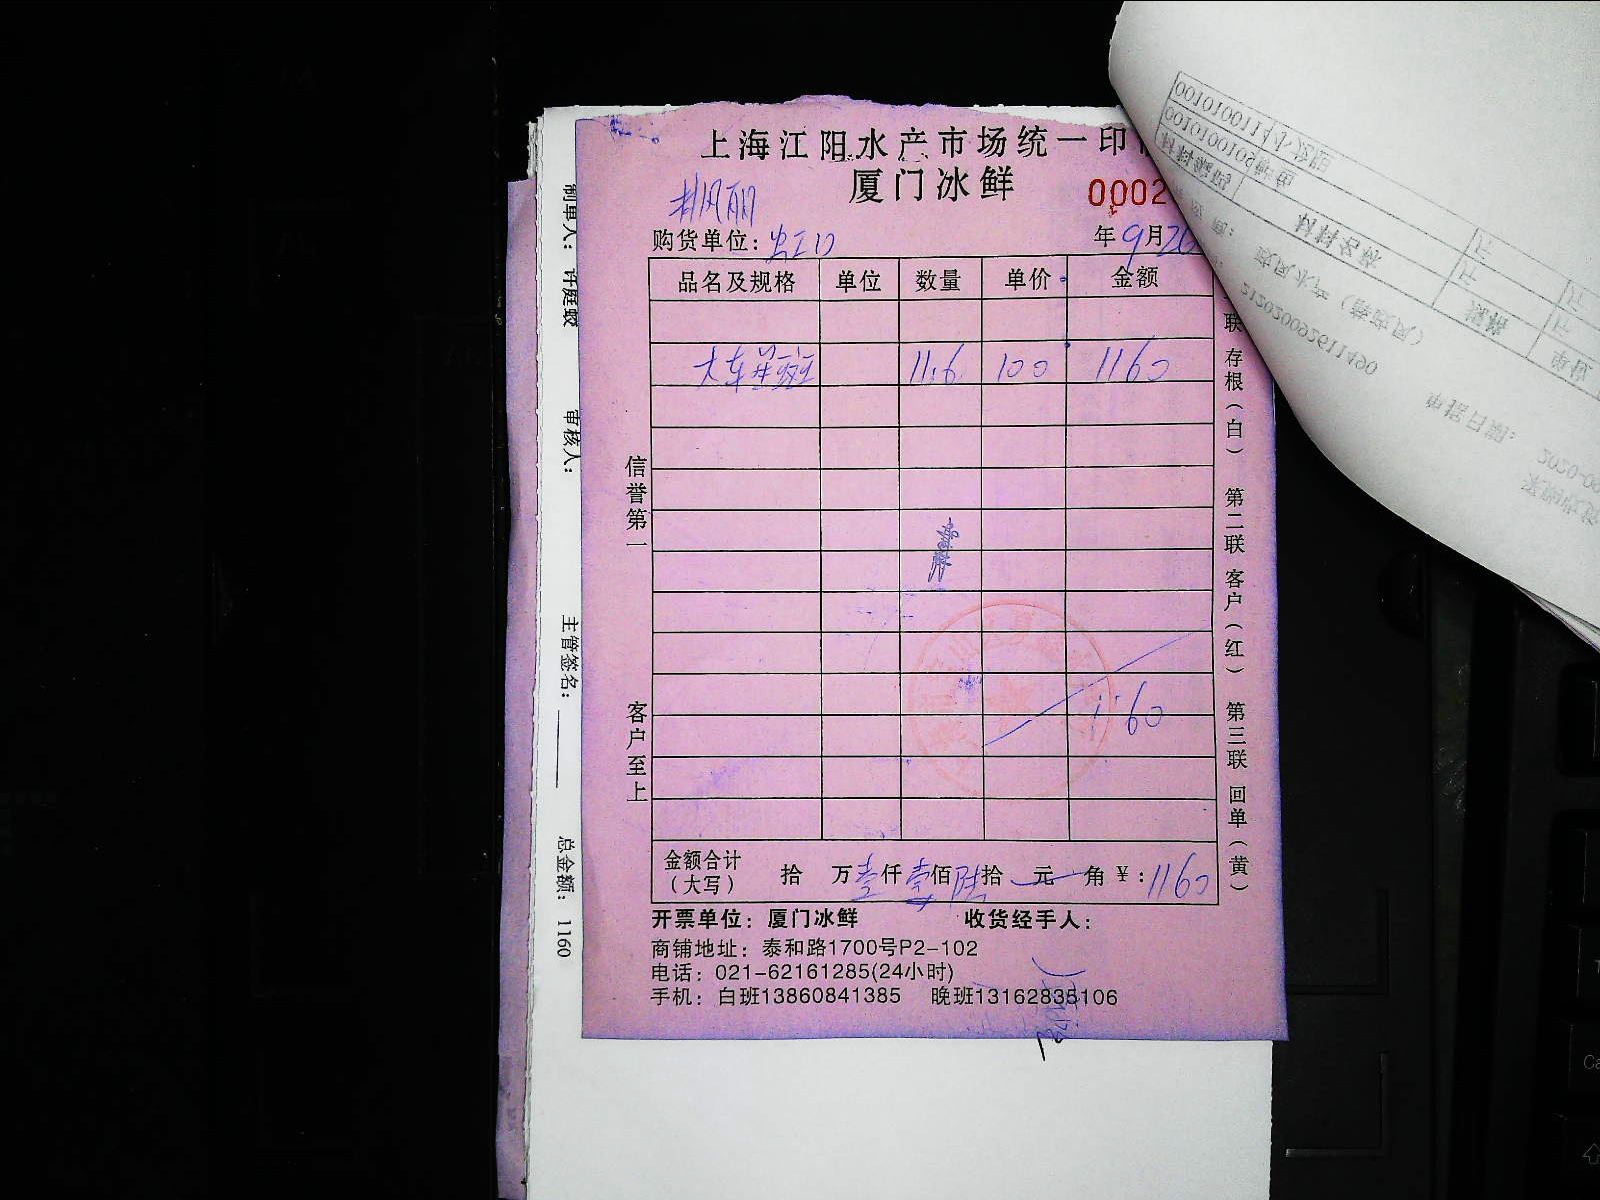 上海江阳水产市场统一印
厦门冰鲜
0002
购货单位：虹口
年9月26
品名及规格 单位 数量 单价 金额
大东星斑 11.6 100 1160
1160
金额合计（大写） 拾 万壹仟壹佰陆拾 元 角 ¥：1160
开票单位：厦门冰鲜 收货经手人：
商铺地址：泰和路1700号P2-102
电话：021-62161285(24小时)
手机：白班13860841385 晚班13162835106
信誉第一
客户至上
联 存根（白） 第二联 客户（红） 第三联 回单（黄）
制单人：许庭蛟 审核人： 主管签名： 总金额：1160